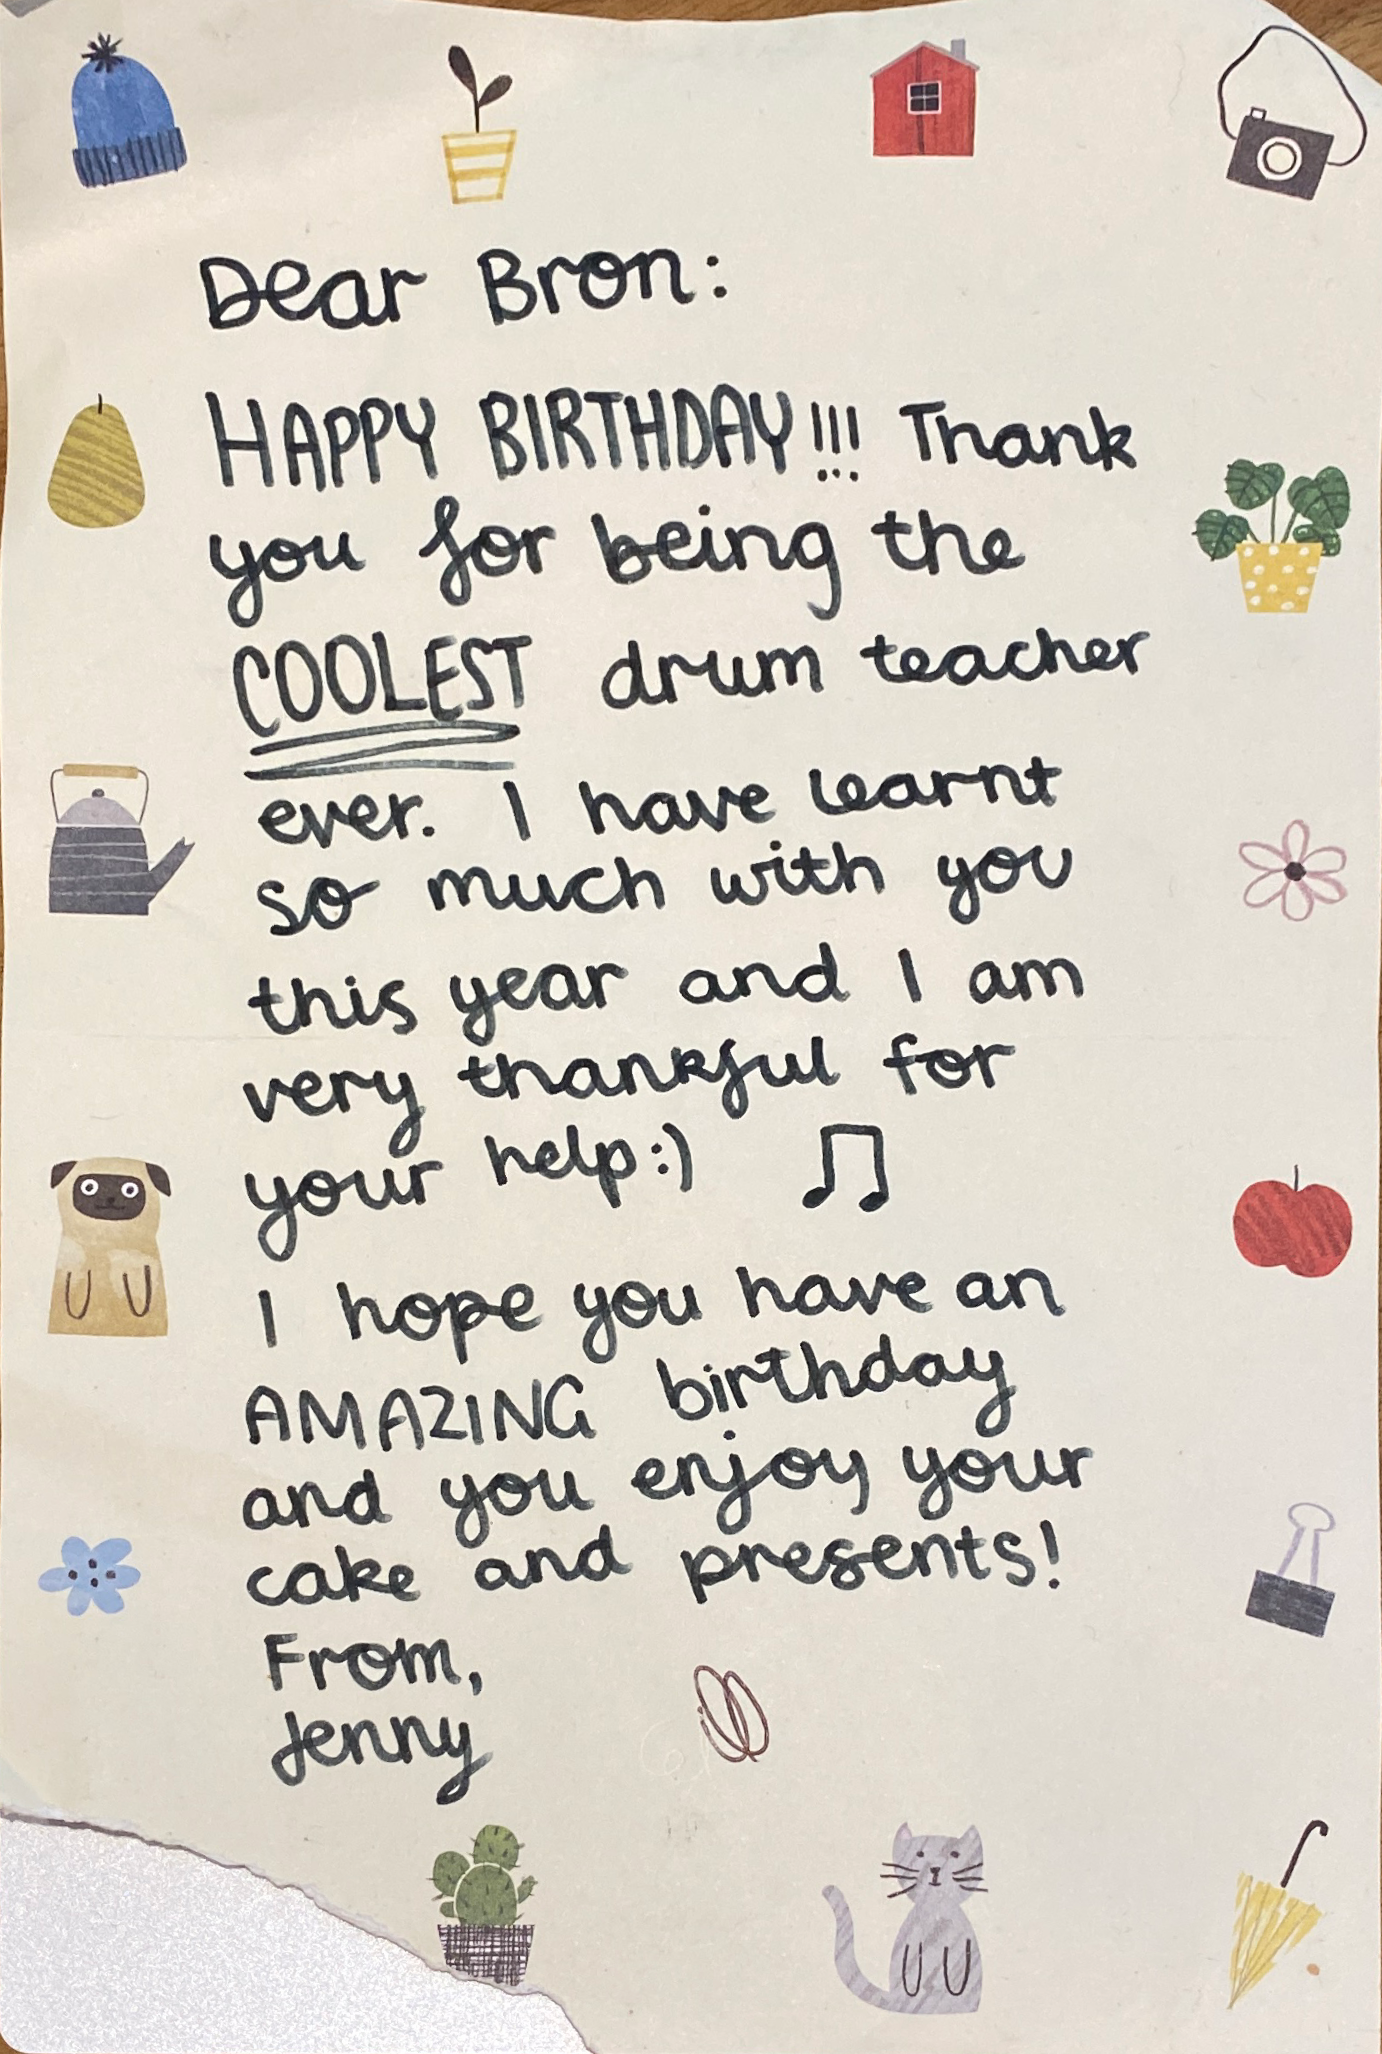 Dear Bron:
HAPPY BIRTHDAY!!! Thank
you for being the
COOLEST drum teacher
ever. I have learnt
so much with you
this year and I am
very thankful for
your help:)
I hope you have an
AMAZING birthday
and you enjoy your
cake and presents!
From,
Jenny